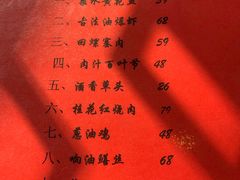 二、古法油爆虾 68
三、田螺塞肉 59
四、肉汁百叶节 48
五、酒香草头 26
六、桂花红烧肉 79
七、葱油鸡 48
八、响油鳝丝 68